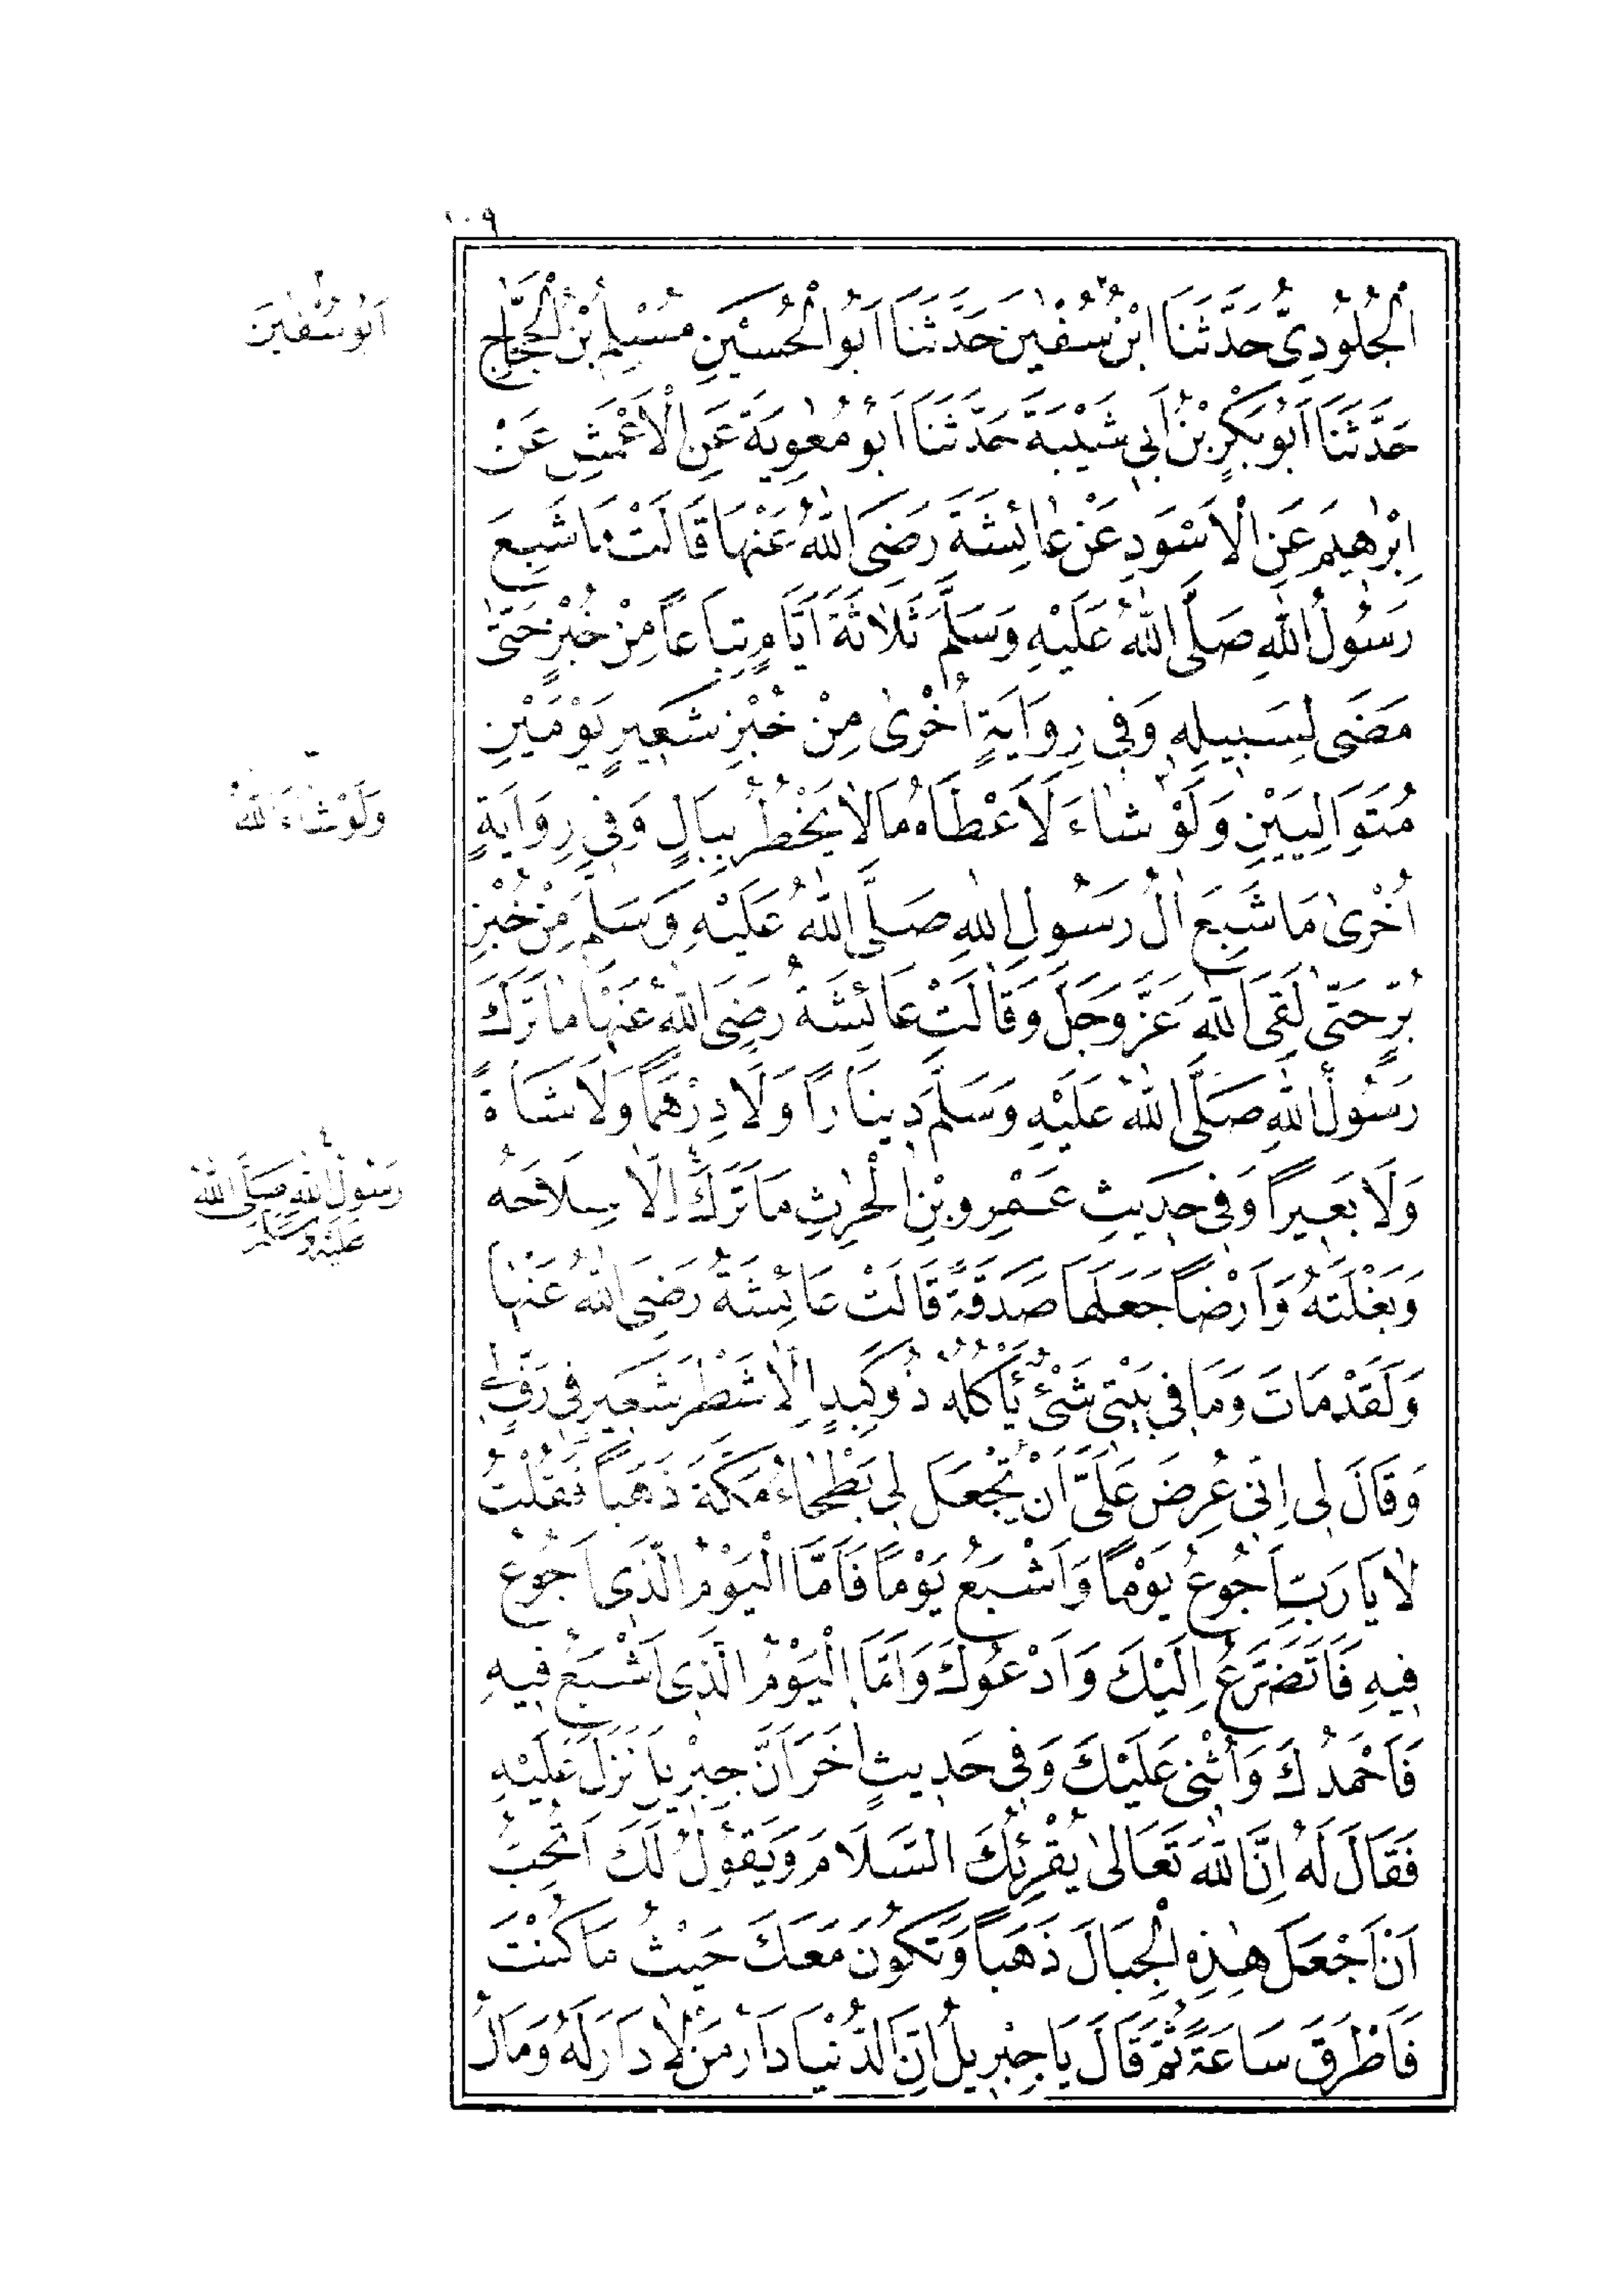 ١٠٩
اَلْجُلُودِىُّ حَدَّثَنَا ابْنُ سُفْيٰنَ حَدَّثَنَا اَبُو الْحُسَيْنِ مُسْلِمُ بْنُ الْحَجَّاجِ
حَدَّثَنَا اَبُو بَكْرِ بْنُ اَبِى شَيْبَةَ حَدَّثَنَا اَبُو مُعٰوِيَةَ عَنِ الْاَعْمَشِ عَنْ
اِبْرٰهِيمَ عَنِ الْاَسْوَدِ عَنْ عَائِشَةَ رَضِىَ اللّٰهُ عَنْهَا قَالَتْ مَا شَبِعَ
رَسُولُ اللّٰهِ صَلَّى اللّٰهُ عَلَيْهِ وَسَلَّمَ ثَلَاثَةَ اَيَّامٍ تِبَاعاً مِنْ خُبْزٍ حَتّٰى
مَضٰى لِسَبِيلِهِ وَفِى رِوَايَةٍ اُخْرٰى مِنْ خُبْزِ شَعِيرٍ يَوْمَيْنِ
مُتَوَالِيَيْنِ وَلَوْ شَاءَ لَاَعْطَاهُ مَا لَا يَخْطُرُ بِبَالٍ وَفِى رِوَايَةٍ
اُخْرٰى مَا شَبِعَ اٰلُ رَسُولِ اللّٰهِ صَلَّى اللّٰهُ عَلَيْهِ وَسَلَّمَ مِنْ خُبْزِ
بُرٍّ حَتّٰى لَقِىَ اللّٰهَ عَزَّ وَجَلَّ وَقَالَتْ عَائِشَةُ رَضِىَ اللّٰهُ عَنْهَا مَا تَرَكَ
رَسُولُ اللّٰهِ صَلَّى اللّٰهُ عَلَيْهِ وَسَلَّمَ دِينَاراً وَلَا دِرْهَماً وَلَا شَاةً
وَلَا بَعِيراً وَفِى حَدِيثِ عَمْرِو بْنِ الْحٰرِثِ مَا تَرَكَ اِلَّا سِلَاحَهُ
وَبَغْلَتَهُ وَاَرْضاً جَعَلَهَا صَدَقَةً قَالَتْ عَائِشَةُ رَضِىَ اللّٰهُ عَنْهَا
وَلَقَدْ مَاتَ وَمَا فِى بَيْتِى شَىْءٌ يَأْكُلُهُ ذُو كَبِدٍ اِلَّا شَطْرَ شَعِيرٍ فِى رَفٍّ لِى
وَقَالَ لِى اِنِّى عُرِضَ عَلَىَّ اَنْ تُجْعَلَ لِى بَطْحَاءُ مَكَّةَ ذَهَباً فَقُلْتُ
لَا يَا رَبِّ اَجُوعُ يَوْماً وَاَشْبَعُ يَوْماً فَاَمَّا الْيَوْمُ الَّذِى اَجُوعُ
فِيهِ فَاَتَضَرَّعُ اِلَيْكَ وَاَدْعُوكَ وَاَمَّا الْيَوْمُ الَّذِى اَشْبَعُ فِيهِ
فَاَحْمَدُكَ وَاُثْنِى عَلَيْكَ وَفِى حَدِيثٍ اٰخَرَ اَنَّ جِبْرِيلَ نَزَلَ عَلَيْهِ
فَقَالَ لَهُ اِنَّ اللّٰهَ تَعَالٰى يُقْرِئُكَ السَّلَامَ وَيَقُولُ لَكَ اَتُحِبُّ
اَنْ اَجْعَلَ هٰذِهِ الْجِبَالَ ذَهَباً وَتَكُونَ مَعَكَ حَيْثُ مَا كُنْتَ
فَاَطْرَقَ سَاعَةً ثُمَّ قَالَ يَا جِبْرِيلُ اِنَّ الدُّنْيَا دَارُ مَنْ لَا دَارَ لَهُ وَمَالُ
اَبُو سُفْيٰنَ
وَلَوْ شَاءَ اللّٰهُ
٤
رَسُولُ اللّٰهِ صَلَّى اللّٰهُ
عَلَيْهِ وَسَلَّمَ